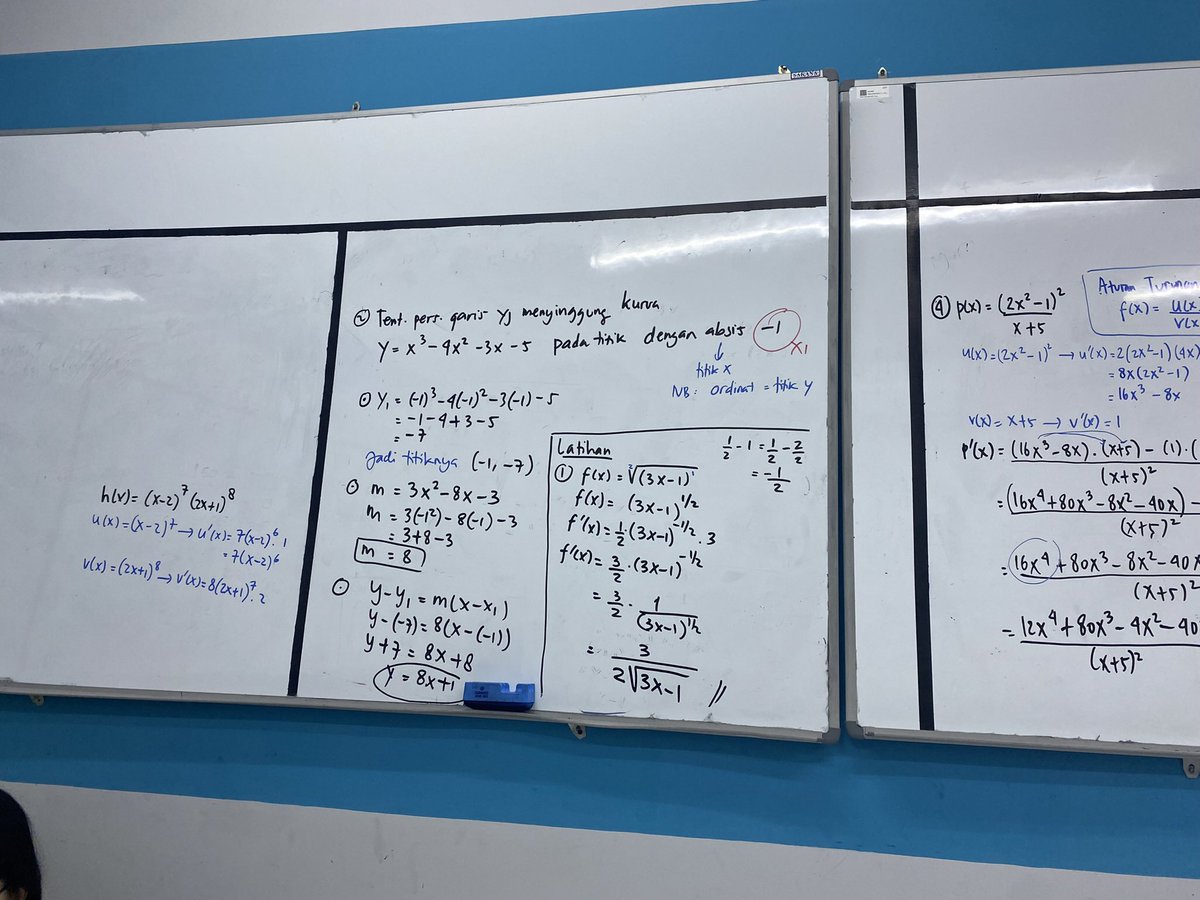 h(x) = (x-2)^7 (2x+1)^8
u(x) = (x-2)^7 → u'(x) = 7(x-2)^6 . 1
= 7(x-2)^6
v(x) = (2x+1)^8 → v'(x) = 8(2x+1)^7 . 2
② Tent. pers. garis yg menyinggung kurva
y = x³ - 4x² - 3x - 5 pada titik dengan absis -1
x₁
↓
titik x
NB: ordinat = titik y
⊙ y₁ = (-1)³ - 4(-1)² - 3(-1) - 5
= -1 - 4 + 3 - 5
= -7
Jadi titiknya (-1, -7)
⊙ m = 3x² - 8x - 3
m = 3(-1²) - 8(-1) - 3
= 3 + 8 - 3
m = 8
⊙ y - y₁ = m(x - x₁)
y - (-7) = 8(x - (-1))
y + 7 = 8x + 8
y = 8x + 1
Latihan
① f(x) = ²√(3x-1)¹
f(x) = (3x-1)^1/2
f'(x) = 1/2 . (3x-1)^-1/2 . 3
f'(x) = 3/2 . (3x-1)^-1/2
= 3/2 . 1/(3x-1)^1/2
= 3/(2√(3x-1)) //
1/2 - 1 = 1/2 - 2/2
= -1/2
④ p(x) = (2x²-1)²/(x+5)
Aturan Turunan
f(x) = u(x)/v(x)
u(x) = (2x²-1)² → u'(x) = 2(2x²-1)(4x)
= 8x(2x²-1)
= 16x³ - 8x
v(x) = x+5 → v'(x) = 1
p'(x) = (16x³-8x).(x+5) - (1).(
(x+5)²
= (16x⁴+80x³-8x²-40x) -
(x+5)²
= 16x⁴+80x³-8x²-40x
(x+5)²
= 12x⁴+80x³-4x²-40
(x+5)²